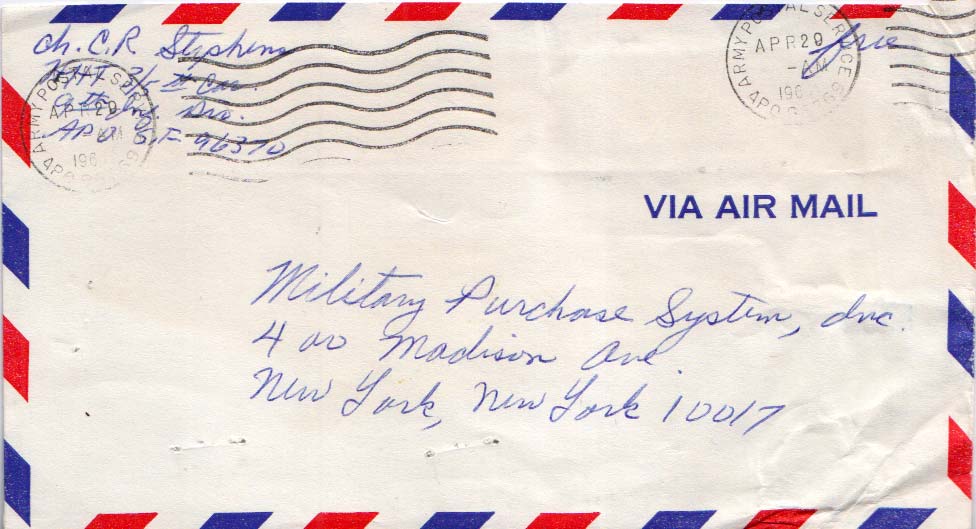 Ch. C. R. Stephens
HHT 3/5 th Cav.
9 th Inf. Div.
APO S.F. 96370
ARMY POSTAL SERVICE
APR 29
-AM
196
APO
69
Free
ARMY POSTAL SERVICE
APR 29
-AM
196
APO
69
VIA AIR MAIL
Military Purchase System, Inc.
400 Madison Ave.
New York, New York 10017